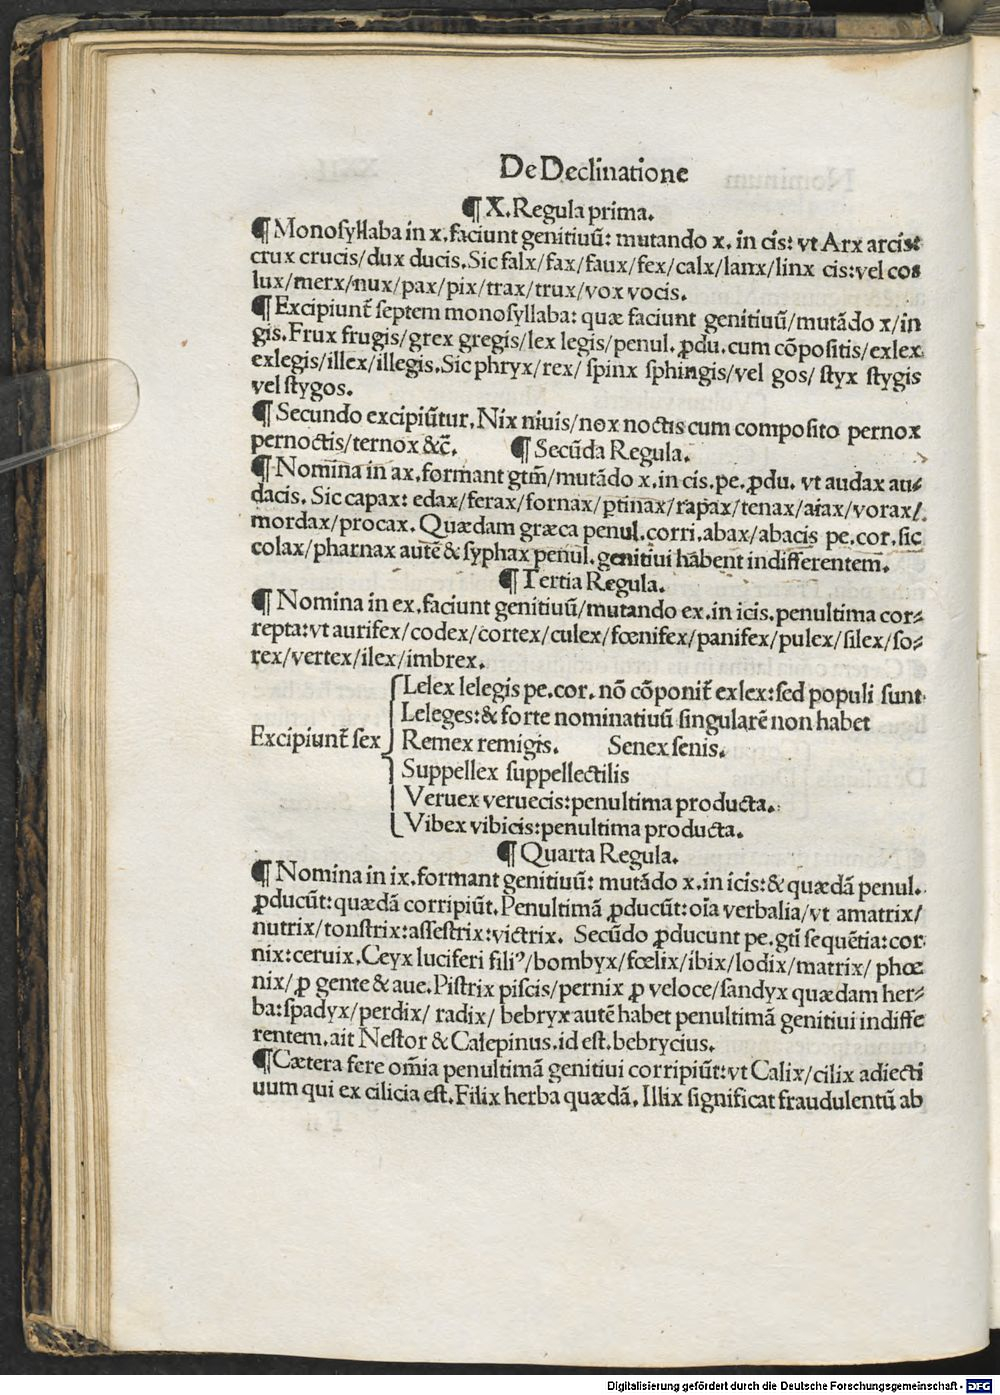 De Declinatione
¶ X. Regula prima.
¶ Monosyllaba in x. faciunt genitiuū: mutando x. in cis: vt Arx arcis:
crux crucis/dux ducis. Sic falx/fax/faux/fex/calx/lanx/linx cis: vel cos
lux/merx/nux/pax/pix/trax/trux/vox vocis.
¶ Excipiunt̄ septem monosyllaba: quæ faciunt genitiuū/mutādo x/in
gis. Frux frugis/grex gregis/lex legis/penul. ꝓdu. cum cōpositis/exlex
exlegis/illex/illegis. Sic phryx/rex/ spinx sphingis/vel gos/ styx stygis
vel stygos.
¶ Secundo excipiūtur. Nix niuis/nox noctis cum composito pernox
pernoctis/ternox &c̄. ¶ Secūda Regula.
¶ Nomina in ax. formant gtm̄/mutādo x. in cis. pe. ꝓdu. vt audax au⸗
dacis. Sic capax: edax/ferax/fornax/ꝑtinax/rapax/tenax/aiax/vorax/
mordax/procax. Quædam græca penul. corri. abax/abacis pe. cor. sic
colax/pharnax autē & syphax penul. genitiui habent indifferentem.
¶ Tertia Regula.
¶ Nomina in ex. faciunt genitiuū/mutando ex. in icis. penultima cor⸗
repta: vt aurifex/codex/cortex/culex/fœnifex/panifex/pulex/silex/so⸗
rex/vertex/ilex/imbrex.
Lelex lelegis pe. cor. nō cōponit̄ exlex: sed populi sunt
Leleges: & forte nominatiuū singularē non habet
Excipiunt̄ sex Remex remigis. Senex senis.
Suppellex suppellectilis
Veruex veruecis: penultima producta.
Vibex vibicis: penultima producta.
¶ Quarta Regula.
¶ Nomina in ix. formant genitiuū: mutādo x. in icis: & quædā penul.
ꝓducūt: quædā corripiūt. Penultimā ꝓducūt: oīa verbalia/vt amatrix/
nutrix/tonstrix: assestrix: victrix. Secūdo ꝓducunt pe. gtī sequētia: cor
nix: ceruix. Ceyx luciferi filiꝰ/bombyx/fœlix/ibix/lodix/matrix/ phœ
nix/ ꝓ gente & aue. Pistrix piscis/pernix ꝓ veloce/sandyx quædam her⸗
ba: spadyx/perdix/ radix/ bebryx autē habet penultimā genitiui indiffe
rentem. ait Nestor & Calepinus. id est. bebrycius.
¶ Cætera fere om̄ia penultimā genitiui corripiūt: vt Calix/cilix adiecti
uum qui ex cilicia est. Filix herba quædā. Illix significat fraudulentū ab
Digitalisierung gefördert durch die Deutsche Forschungsgemeinschaft - DFG